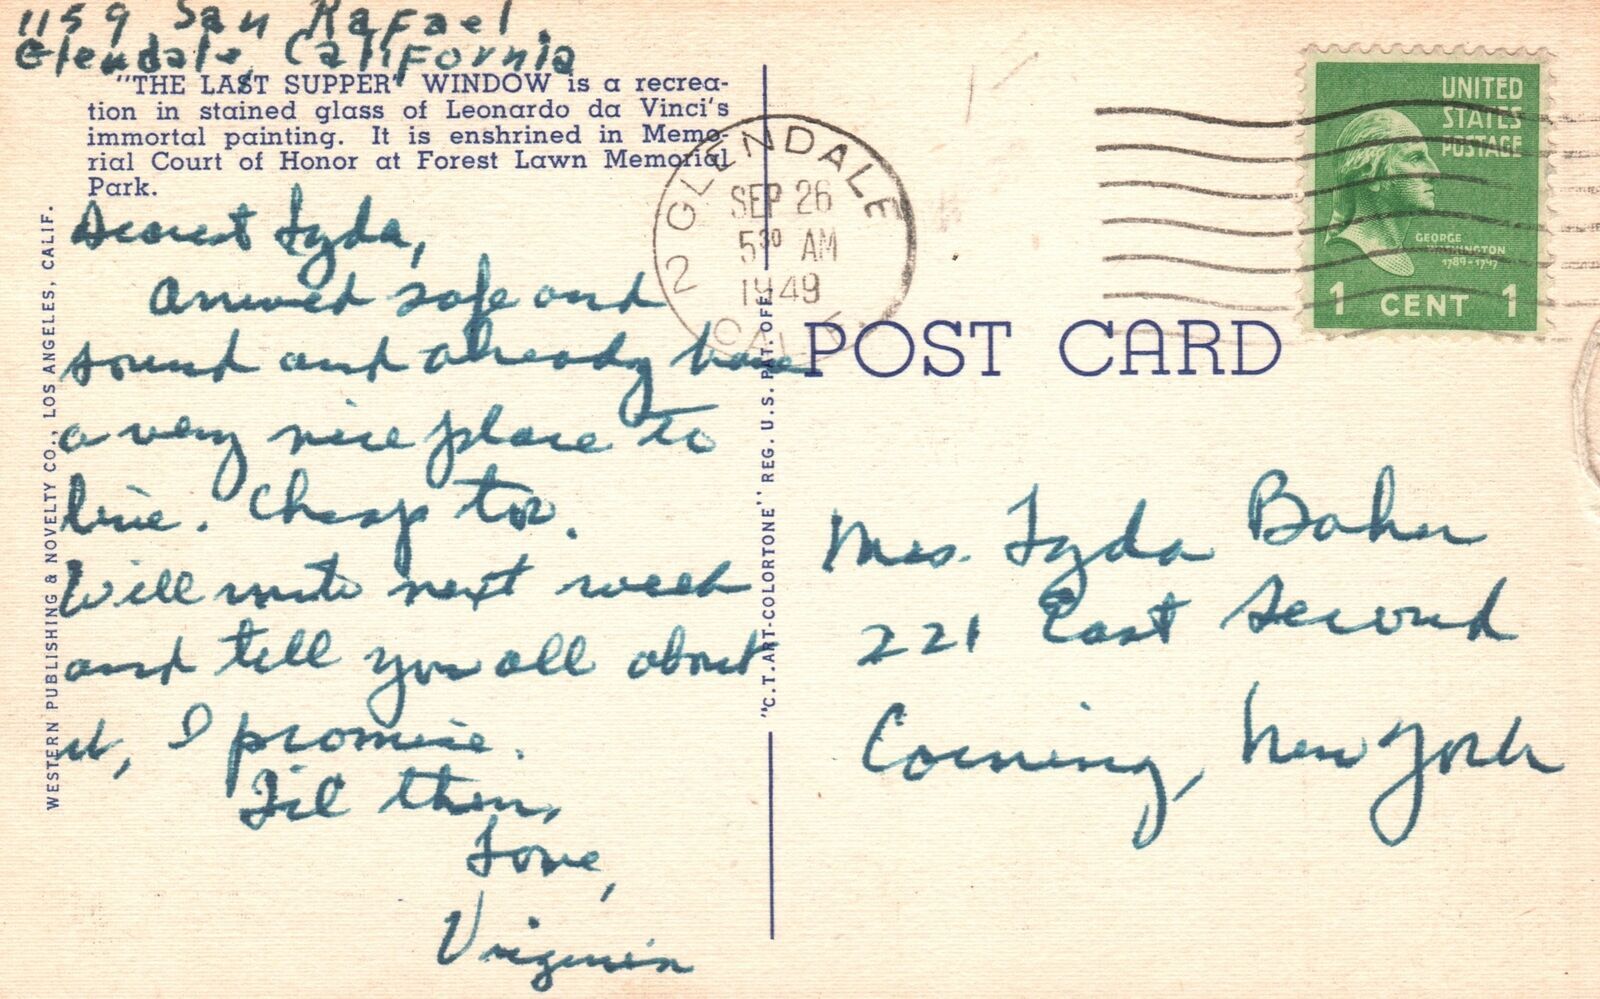 1159 San Rafael
Glendale, California
"THE LAST SUPPER" WINDOW is a recrea-
tion in stained glass of Leonardo da Vinci's
immortal painting. It is enshrined in Memo-
rial Court of Honor at Forest Lawn Memorial
Park.
Dearest Lyda,
Arrived safe and
sound and already have
a very nice place to
live. Cheap too.
Will write next week
and tell you all about
it, I promise.
Til then,
Love,
Virginia
WESTERN PUBLISHING & NOVELTY CO., LOS ANGELES, CALIF.
"C.T. ART-COLORTONE" REG. U.S. PAT. OFF.
GLENDALE 2
SEP 26
5 30 AM
1949
CALIF.
UNITED
STATES
POSTAGE
GEORGE
WASHINGTON
1789-1797
1 CENT 1
POST CARD
Mrs. Lyda Baker
221 East Second
Corning, New York